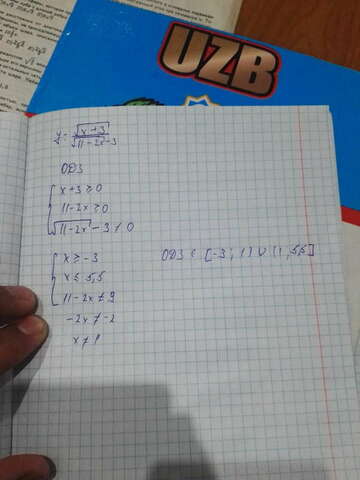 UZB
y = √x+3 / √11-2x - 3
ОДЗ
x+3 ≥ 0
11-2x ≥ 0
√11-2x - 3 ≠ 0
x ≥ -3
x ≤ 5,5
11-2x ≠ 9
-2x ≠ -2
x ≠ 1
ОДЗ ∈ [-3; 1) ∪ (1; 5,5]